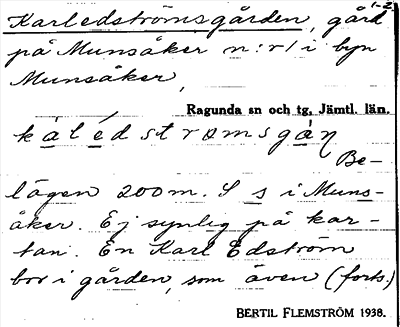 1-2
Karledströmsgården, gård
på Munsåker n:r 1 i byn
Munsåker,
Ragunda sn och tg, Jämtl. län.
Be-
lägen 200 m. S s i Muns-
åker. Ej synlig på kar-
tan. En Karl Edström
bor i gården, som även (forts.)
BERTIL FLEMSTRÖM 1938.